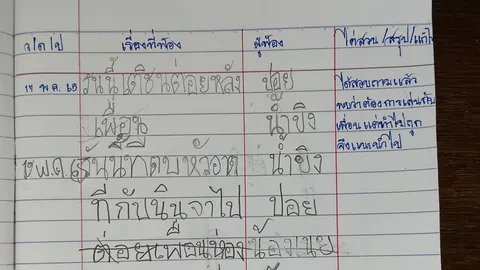 ว/ด/ป เรื่องที่ฟ้อง ผู้ฟ้อง ไต่สวน/สรุป/แก้ไข
๑๙ พ.ค. ๖๕ วันนี้เตชินต่อยหลัง ปอย ได้สอบถามแล้ว
เพื่อน น้ำขิง พบว่าต้องการเล่นกับ
เพื่อนแต่ทำไปถูก
พ.ค. วันนี้ น้ำขิง จึงแนะนำไป
ที่กับนินจาไป ปอย
ต่อยเพื่อนห่อง น้องเนย